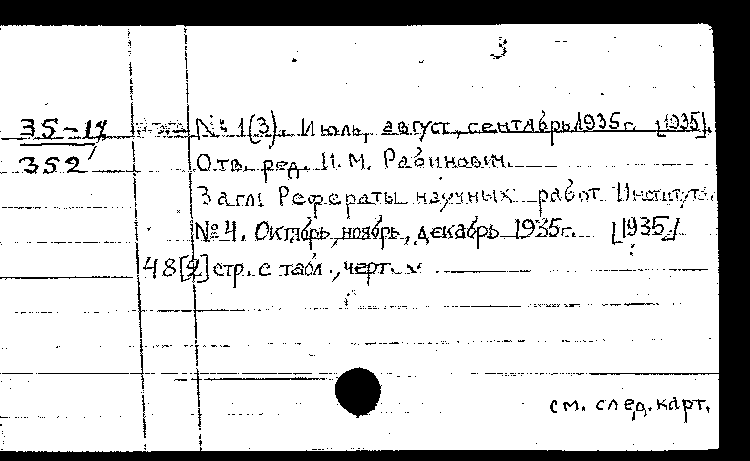 3
35-17
352
№ 1(3). Июль, август, сентябрь 1935 г. [1935].
Отв. ред. И. М. Рабинович.
Загл: Рефераты научных работ Института.
№ 4. Октябрь, ноябрь, декабрь 1935 г. [1935]
48[2] стр. с табл., черт.
см. след. карт.